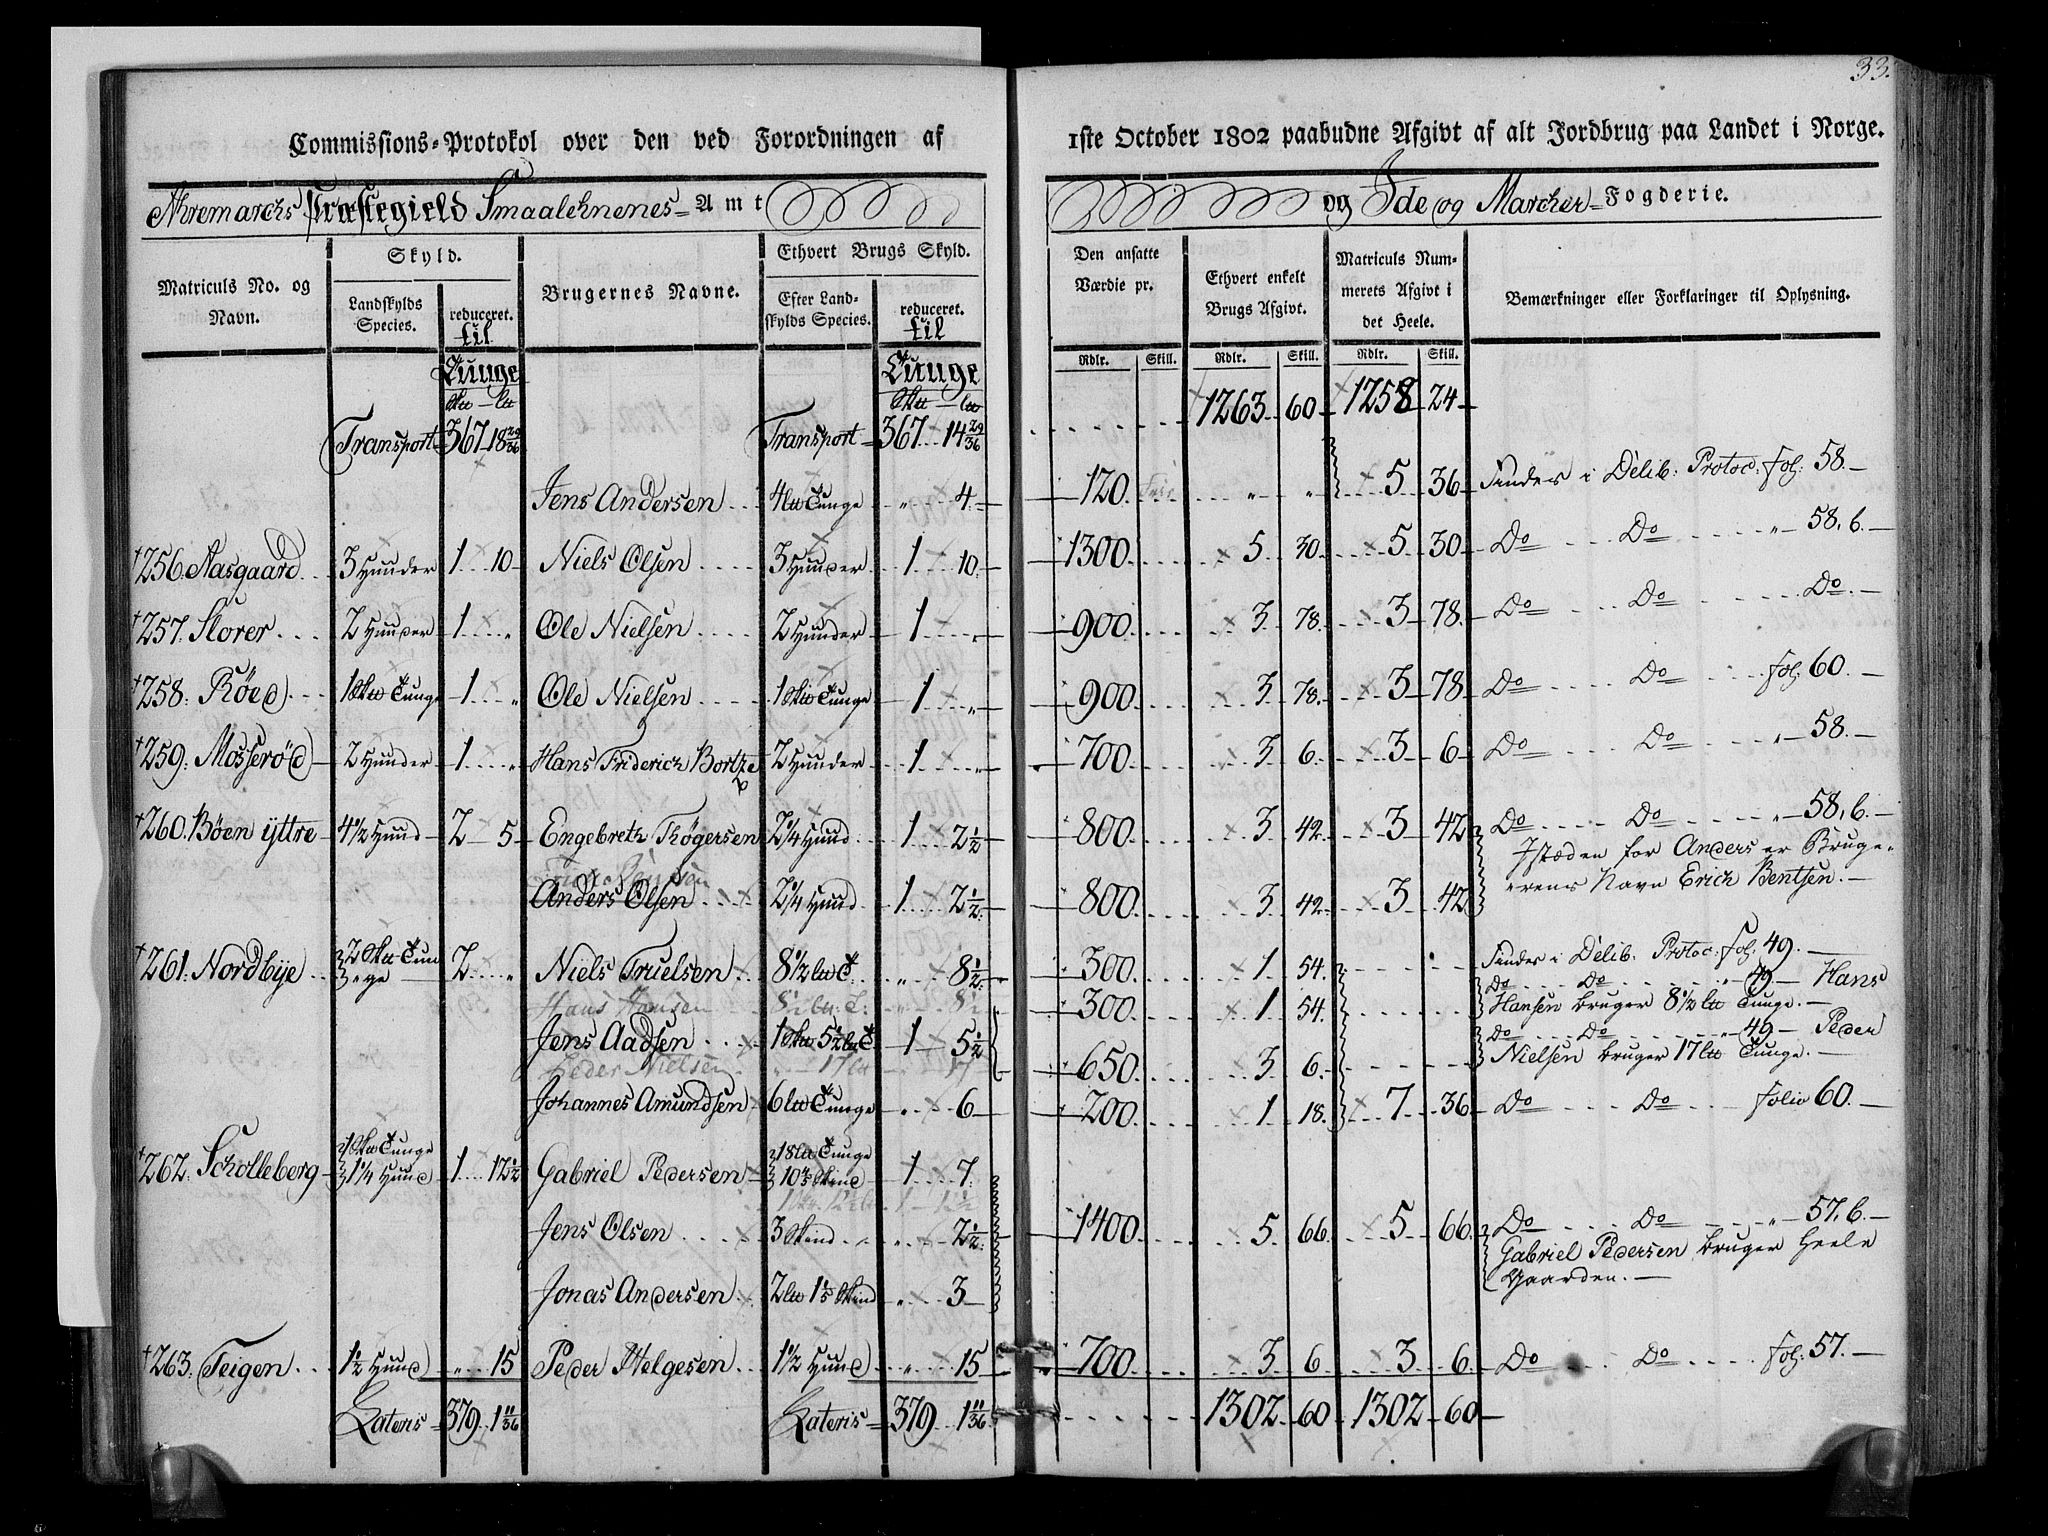 33.
Commissions-Protokol over den ved Forordningen af 1ste October 1802 paabudne Afgivt af alt Jordbrug paa Landet i Norge.
Aremarchs Præstegield Smaalehnenes Amt og Ide og Marcher Fogderie.
Matriculs No. og Navn. Skyld. Brugernes Navne. Ethvert Brugs Skyld. Den ansatte Værdie pr. Ethvert enkelt Brugs Afgivt. Matriculs Nummerets Afgivt i det Heele. Bemærkninger eller Forklaringer til Oplysning.
Landskylds Species. reduceret. til Efter Landskylds Species. reduceret. til
Rdlr. Skill. Rdlr. Skill. Rdlr. Skill.
Tunge Tunge
Sktt - ltt Sktt - ltt
Transport 367 18 29/36 Transport 367 14 29/36 1263 60 1258 24
Jens Andersen 4 ltt Tunge " 4 120 " " 5 36 Findes i Delib: Protoc: fol: 58.
†256. Aasgaard 3 Hunder 1 10 Niels Olsen 3 Hunder 1 10 1300 5 30 5 30 Do Do " 58, b.
†257. Storer 2 Hunder 1 " Ole Nielsen 2 Hunder 1 " 900 3 78 3 78 Do Do Do
†258. Röed 1 Sktt Tunge 1 " Ole Nielsen 1 Sktt Tunge 1 " 900 3 78 3 78 Do Do fol: 60.
†259. Mosseröd 2 Hunder 1 " Hans Friderich Bortze 2 Hunder 1 " 700 3 6 3 6 Do Do " 58.
†260. Böen yttre 4 1/2 Hund 2 5 Engebreth Rögersen 2 1/4 Hund 1 2 1/2 800 3 42 3 42 Do Do " 58, b.
Istæden for Anders er Bruge-
Anders Olsen 2 1/4 Hund 1 2 1/2 800 3 42 3 42 erens Navn Erich Bentsen.
†261. Nordbye 2 Sktt Tunge 2 " Niels Truelsen 8 1/2 ltt T " 8 1/2 300 1 54 Findes i Delib. Protoc: fol: 49.
Do Do " 49 Hans
Hans Hansen 8 1/2 ltt T. " 8 1/2 300 1 54 Hansen bruger 8 1/2 ltt Tunge.
Jens Aadsen 1 Sktt 5 1/2 ltt T 1 5 1/2 Do Do " 49 Peder
Peder Nielsen " 17 ltt 17 650 3 6 Nielsen bruger 17 ltt Tunge.
Johannes Amundsen 6 ltt Tunge " 6 200 1 18 7 36 Do Do folio 60.
†262. Scholleberg 1 Sktt Tunge 1 1/4 Hund 1 12 1/2 Gabriel Pedersen 18 ltt Tunge 10 4/5 Skind 1 7
Jens Olsen 3 Skind " 2 1/2 1400 5 66 5 66 Do Do " 57, b.
Gabriel Pedersen bruger heele
Gaarden.
Jonas Andersen 2 ltt 1 1/5 Skind " 3
†263. Teigen 1 1/2 Hund " 15 Peder Helgesen 1 1/2 Hund " 15 700 3 6 3 6 Do Do fol: 57.
Lateris 379 1 11/36 Lateris 379 1 11/36 1302 60 1302 60